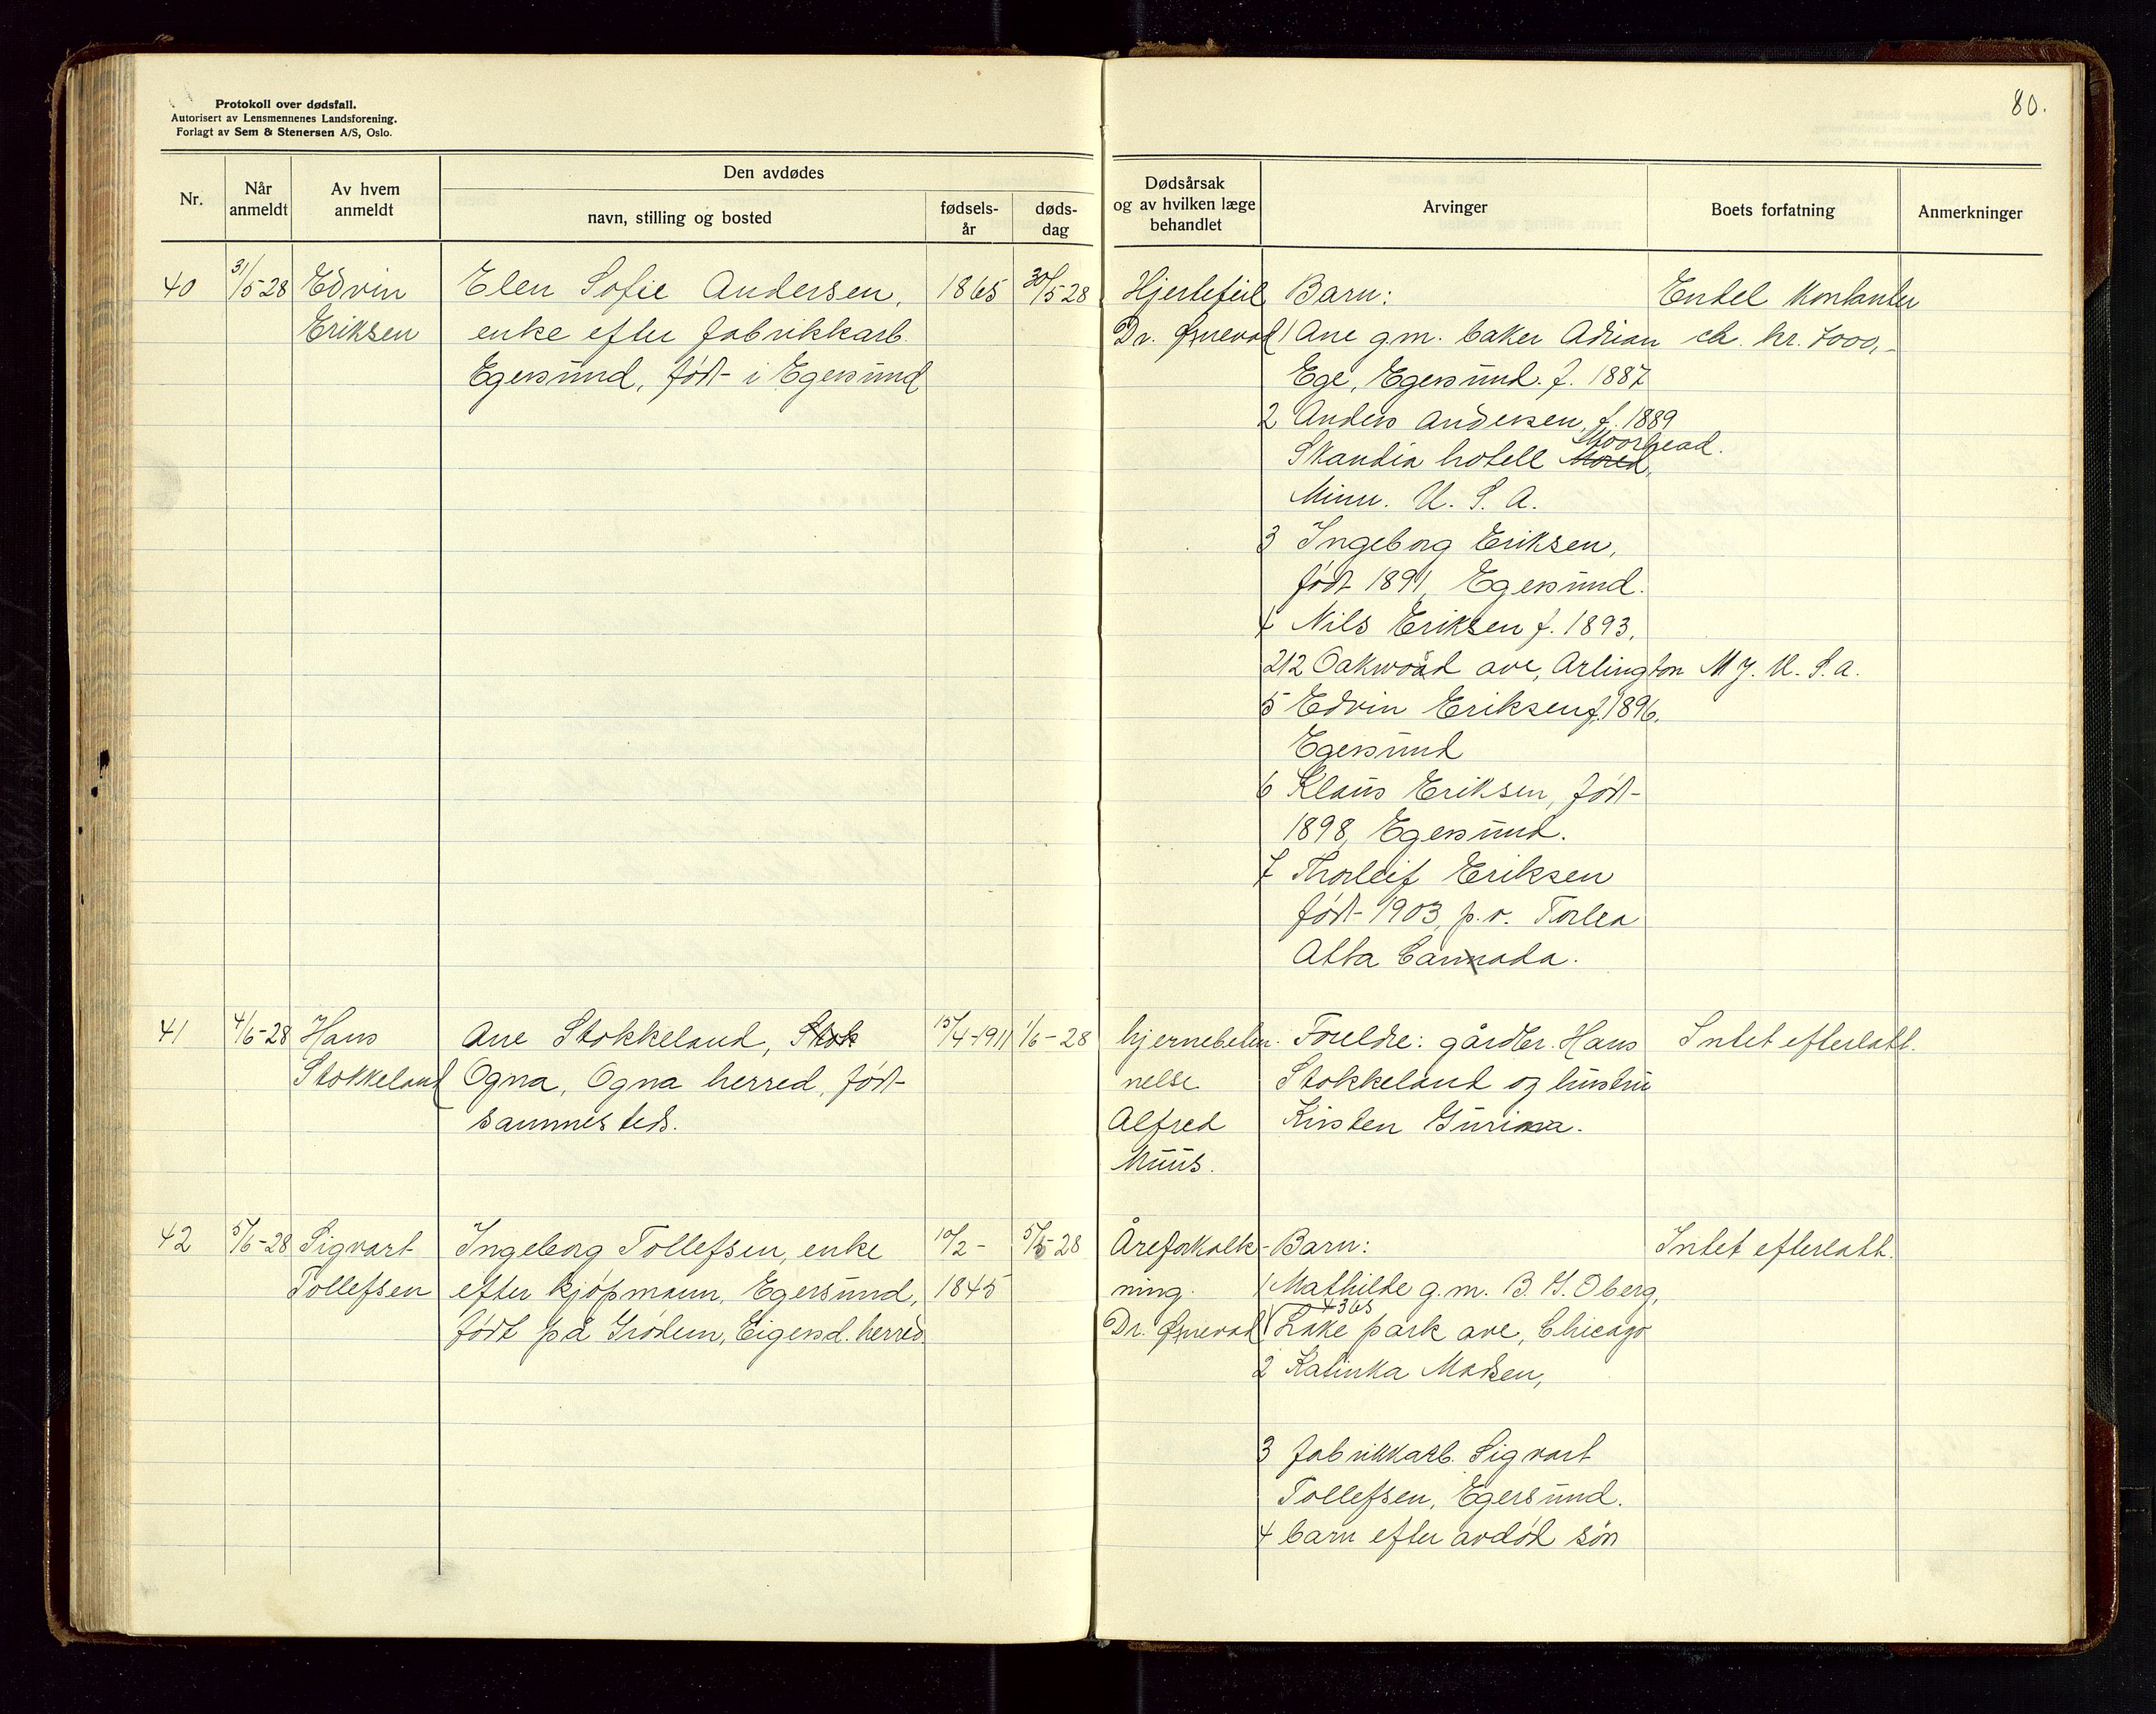 Protokoll over dødsfall.
Autorisert av Lensmennenes Landsforening.
Forlagt av Sem & Stenersen A/S, Oslo.
80.
Nr.
Når anmeldt
Av hvem anmeldt
Den avdødes
navn, stilling og bosted
fødsels-år
døds-dag
Dødsårsak og av hvilken læge behandlet
Arvinger
Boets forfatning
Anmerkninger
40
31/5-28
Edvin
Eriksen
Elen Sofie Andersen,
enke efter fabrikkarb.
Egersund, født i Egersund
1865
30/5-28
Hjertefeil
Dr.
Barn:
1 Ane gm. baker Adrian
Ege, Egersund. f. 1887
2 Anders Andersen, f. 1889
Moorhead.
Skandia hotell Mored,
Minn. U. S. A.
3 Ingeborg Eriksen,
født 1891, Egersund.
4 Nils Eriksen f. 1893,
212 Oakwood ave, Arlington N J. U. S. A.
5 Edvin Eriksen f. 1896.
Egersund
6 Klaus Eriksen, født
1898, Egersund.
7 Thorleif Eriksen
født 1903, p.v. Torlea
Alta Cannada.
Endel kontanter
ca. kr. 7000,-
41
4/6-28
Hans
Stokkeland
Ane Stokkeland, Stok
Ogna, Ogna herred, født
sammesteds.
15/4-1911
1/6-28
hjernebeten-
nelse
Alfred
Muus.
Foreldre: gårdbr. Hans
Stokkeland og hustru
Kirsten Gurina.
Intet efterlatt.
42
5/6-28
Sigvart
Tollefsen
Ingeborg Tollefsen, enke
efter kjøpmann, Egersund,
født på Grødem, Eigersd. herred
10/2-
1845
5/6-28
Åreforkalk-
ning.
Dr.
Barn:
1 Mathilde g.m. B. G. Oberg,
4365
Lake park ave, Chicago
2 Kalinka Madsen,
3 fabrikkarb. Sigvart
Tollefsen, Egersund.
4 barn efter avdød søn
Intet efterlatt.